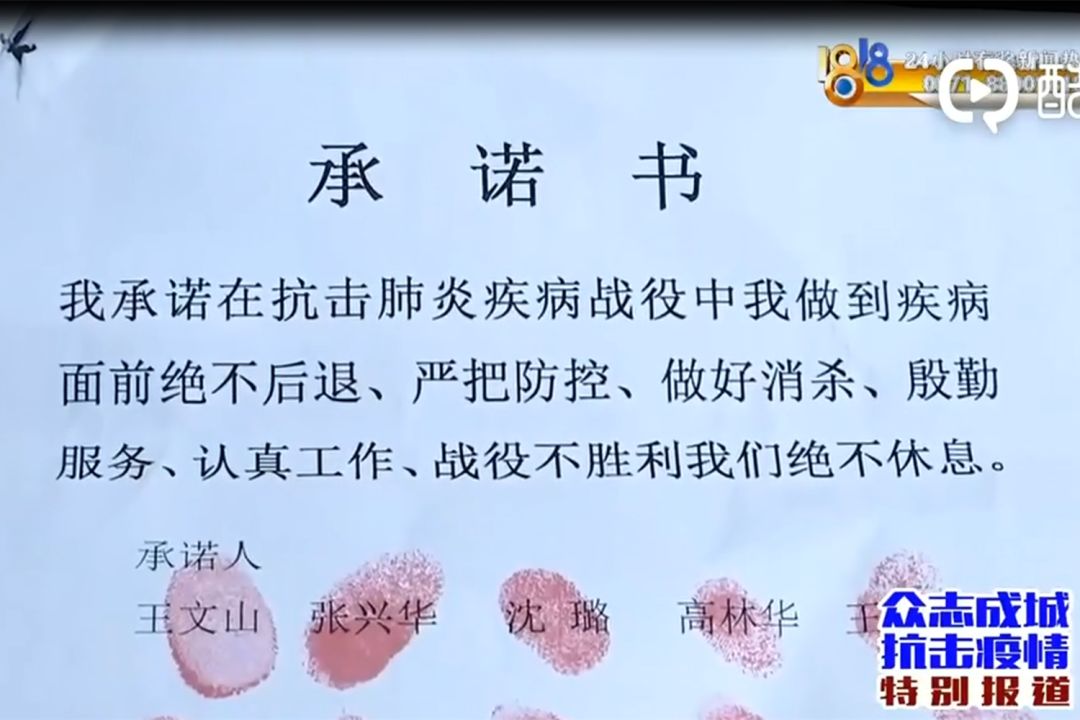 1818
24小时
承 诺 书
我承诺在抗击肺炎疾病战役中我做到疾病
面前绝不后退、严把防控、做好消杀、殷勤
服务、认真工作、战役不胜利我们绝不休息。
承诺人
王文山 张兴华 沈 璐 高林华 王
众志成城
抗击疫情
特别报道